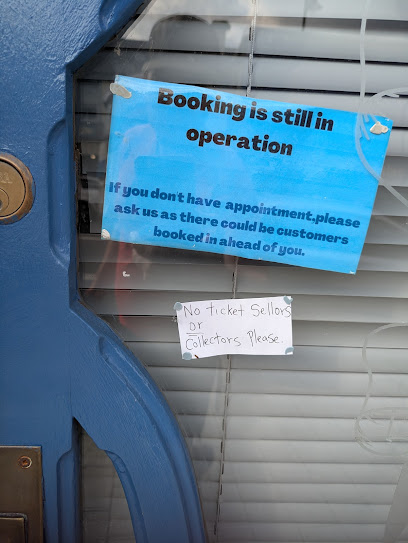 Booking is still in
operation
If you don't have appointment,please
ask us as there could be customers
booked in ahead of you.
No ticket Sellors
or
Collectors Please.